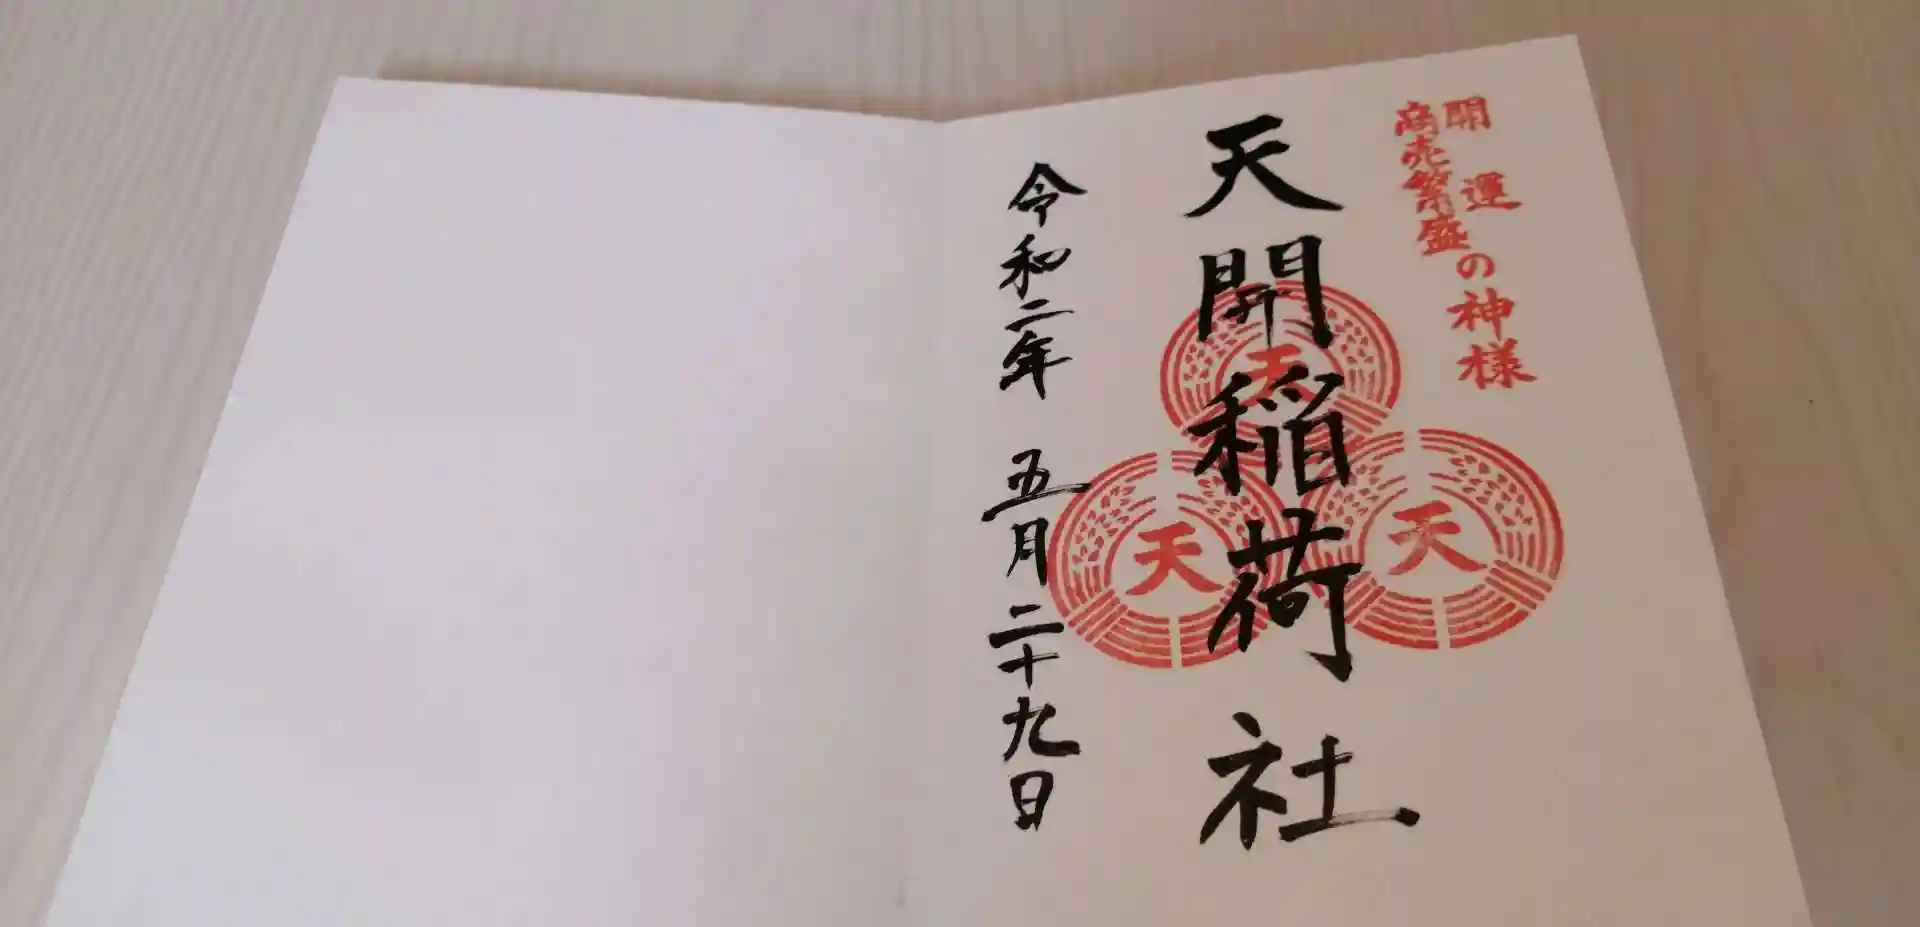 開運
商売繁盛
の神様
天開稲荷社
天
天
天
令和二年 五月二十九日